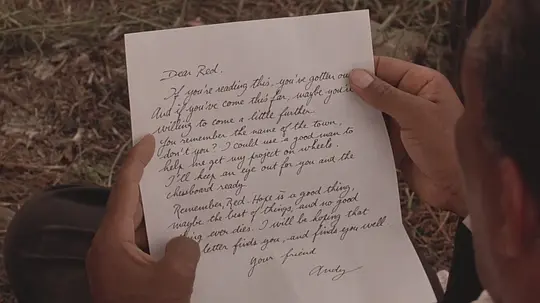 Dear Red.
If you're reading this, you've gotten out
And if you've come this far, maybe you're
willing to come a little further.
You remember the name of the town,
don't you? I could use a good man to
help me get my project on wheels.
I'll keep an eye out for you and the
chessboard ready.
Remember, Red. Hope is a good thing,
maybe the best of things, and no good
thing ever dies. I will be hoping that
letter finds you, and finds you well
your friend
Andy